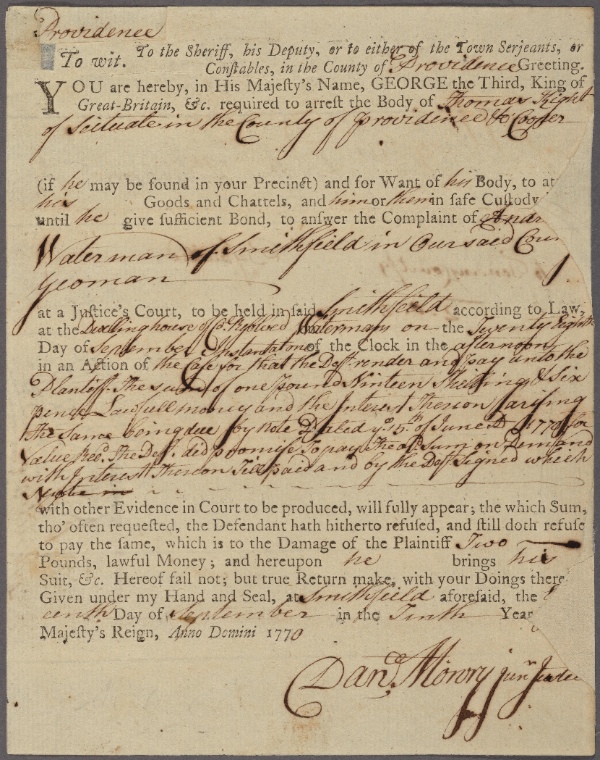 Providence
To wit. To the Sheriff, his Deputy, or to either of the Town Serjeants, or
Constables, in the County of Providence Greeting.
YOU are hereby, in His Majesty's Name, GEORGE the Third, King of
Great-Britain, &c. required to arrest the Body of Thomas Hight
of Scituate in the County of Providence Cooper
(if he may be found in your Precinct) and for Want of his Body, to at
his Goods and Chattels, and him or them in safe Custody
until he give sufficient Bond, to answer the Complaint of Andr
Waterman of Smithfield in Our said Coun
Yeoman
at a Justice's Court, to be held in said Smithfield according to Law,
at the Dwelling house of Waterman on the Twenty Eighth
Day of September Instant at of the Clock in the afternoon
in an Action of the Case for that the Deft. render and pay unto the
Plantiff. The sum of one Pound Nineteen Shillings & Six
pence Lawfull money and the Interest Thereon
the Same being due by Note Dated ye 5 of June AD 1770 for
Value Recd. The Deft. did promise To pay the Sum on Demand
with Interest Thereon Till paid and by the Deft Signed which
with other Evidence in Court to be produced, will fully appear; the which Sum,
tho' often requested, the Defendant hath hitherto refused, and still doth refuse
to pay the same, which is to the Damage of the Plaintiff Two
Pounds, lawful Money; and hereupon he brings his
Suit, &c. Hereof fail not; but true Return make, with your Doings there
Given under my Hand and Seal, at Smithfield aforesaid, the
eenth Day of September in the Tenth Year
Majesty's Reign, Anno Domini 1770
Danel. Mowry junr Justice